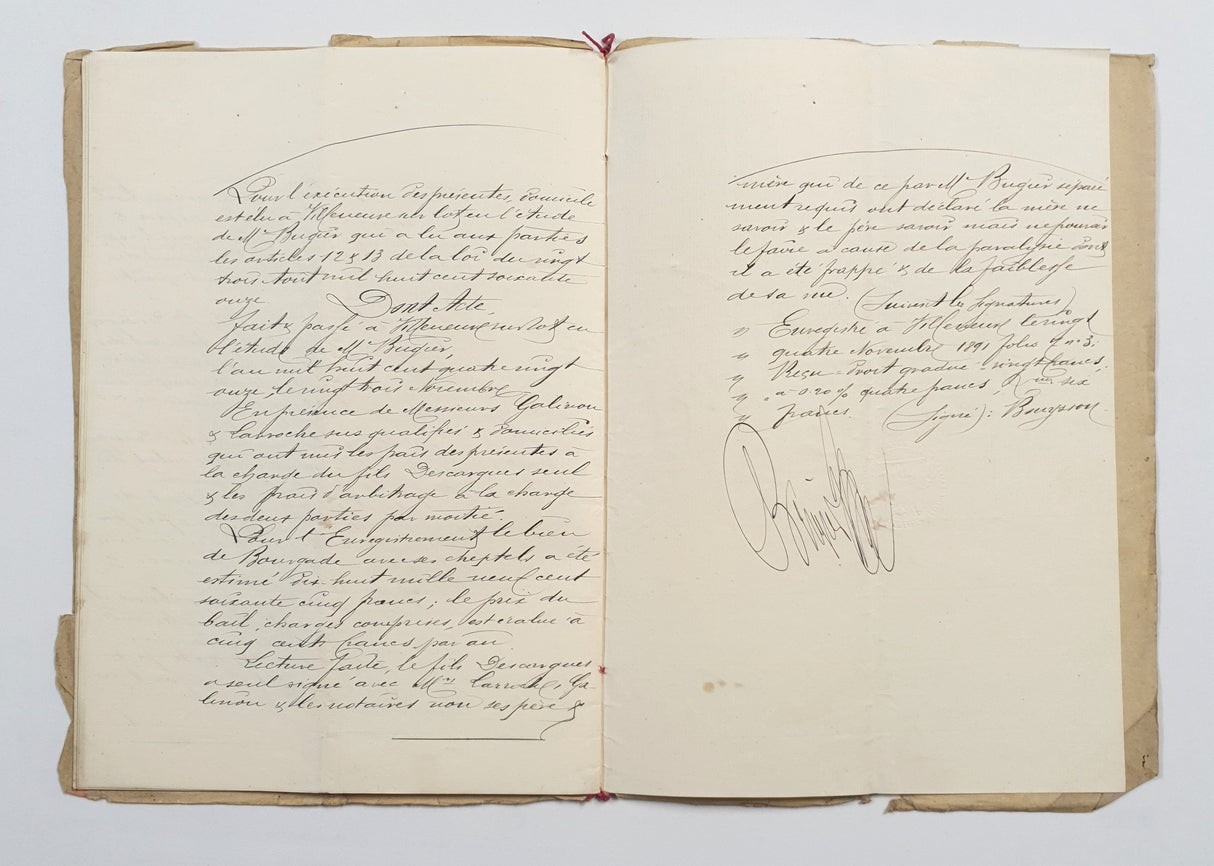 Pour l'exécution des présentes, domicile
est élu à Villeneuve sur Lot en l'étude
de Me Bugier qui a lu aux parties
les articles 12 & 13 de la loi du vingt
trois Août mil huit cent soixante
onze.
Dont Acte,
fait & passé à Villeneuve sur Lot en
l'étude de Me Bugier,
l'an mil huit cent quatre vingt
onze, le vingt trois Novembre
En présence de Messieurs Galinou
& Larroche sus qualifiés & domiciliés
qui ont mis les frais des présentes à
la charge du fils Descorgues seul
& les frais d'arbitrage à la charge
des deux parties par moitié.
Pour l'Enregistrement le bien
de Bourgade avec ses cheptels a été
estimé dix-huit mille neuf cent
soixante cinq francs; le prix du
bail, charges comprises, est évalué à
cinq cents francs par an.
Lecture faite, le fils Descorgues
a seul signé avec Mrs Larroche, Ga-
linou & les notaires non ses père &
mère qui de ce par Me Bugier séparé
ment requis ont déclaré la mère ne
savoir & le père savoir mais ne pouvoir
le faire à cause de la paralysie dont
il a été frappé & de la faiblesse
de sa vue. (Suivent les signatures)
" Enregistré à Villeneuve le vingt
" quatre Novembre 1891 folio 7 n° 3.
" Reçu = Droit gradué vingt francs,
" à 0.20 % quatre francs, six
" francs. (Signé): Bouysson.